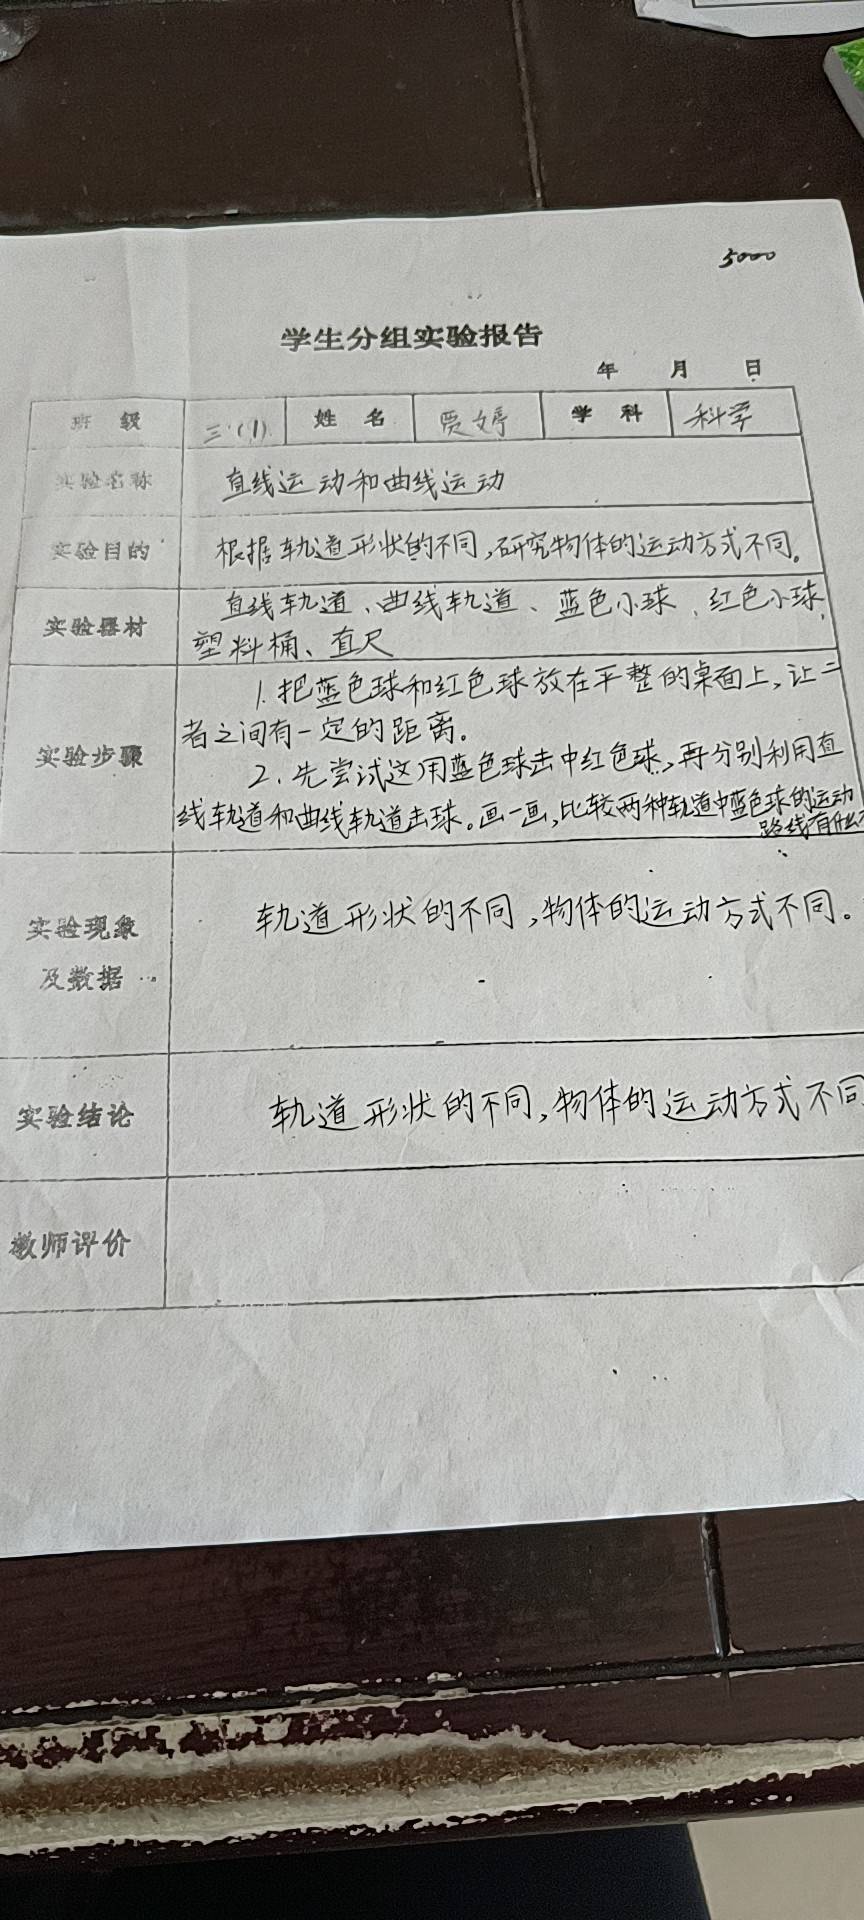 5000
学生分组实验报告
年 月 日
班 级 三(1) 姓 名 贾婷 学 科 科学
实验名称 直线运动和曲线运动
实验目的 根据轨道形状的不同,研究物体的运动方式不同。
实验器材 直线轨道、曲线轨道、蓝色小球、红色小球,
塑料桶、直尺
1. 把蓝色球和红色球放在平整的桌面上,让二
者之间有一定的距离。
实验步骤
2. 先尝试这用蓝色球击中红色球,再分别利用直
线轨道和曲线轨道击球。画一画,比较两种轨道中蓝色球的运动
路线有什么
实验现象 轨道形状的不同,物体的运动方式不同。
及数据
实验结论 轨道形状的不同,物体的运动方式不同
教师评价